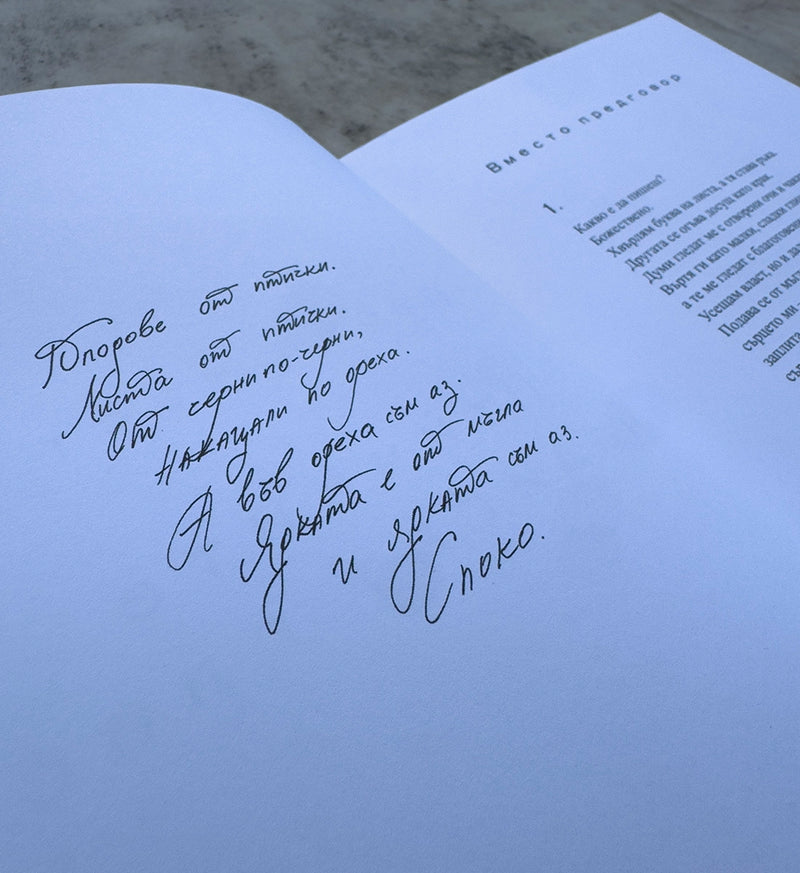 от птички.
Листа от птички.
От черни по-черни,
накацали по ореха.
А във ореха съм аз.
Ярката е от мъгла
и ярката съм аз.
Споко.
Вместо предговор
1.
Какво е да пишеш?
Божествено.
Хвърлям буква на листа, а тя става ръка.
Другата се огъва досущ като крак.
Думи гледат ме с отворени очи и
Въртя ги като малки, сладки
а те ме гледат с
Усещам власт, но и
Подава се от
сърцето ми –